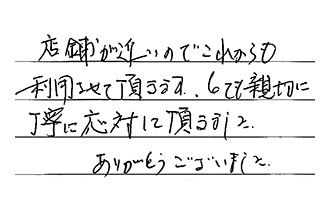 店舗が近いのでこれからも
利用させて頂きます。とても親切に
丁寧に応対して頂きました。
ありがとうございました。